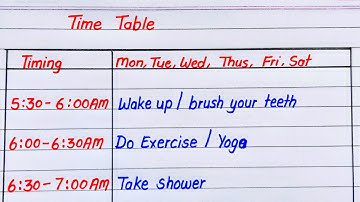 Time Table
Timing Mon, Tue, Wed, Thus, Fri, Sat
5:30-6:00AM Wake up / brush your teeth
6:00-6:30AM Do Exercise / Yoga
6:30-7:00AM Take shower